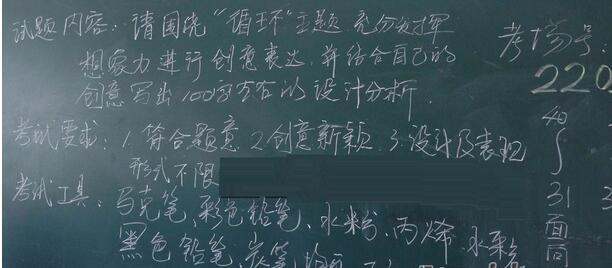 试题内容：请围绕“循环”主题，充分发挥
想象力进行创意表达，并结合自己的
创意写出100字左右的设计分析．
考试要求：1.符合题意 2.创意新颖 3.设计及表现
形式不限
考试工具：马克笔、彩色铅笔、水粉、丙烯、水彩
黑色铅笔、炭笔、均可
考场号：
220
40
∫
31
面向